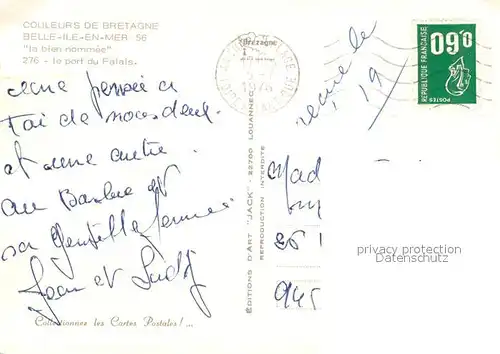 COULEURS DE BRETAGNE
BELLE-ILE-EN-MER 56
"la bien nommée"
276 - le port du Palais.
une pensée à
Toi de nous deux.
et une autre
au Barbu et
sa gentille femme
Jean et
Collectionnez les Cartes Postales!...
ÉDITIONS D'ART "JACK" - 22700 LOUANNEC
REPRODUCTION INTERDITE
Bretagne
1976
le
19
0.60
RÉPUBLIQUE FRANÇAISE
POSTES
Mad
26
945
privacy protection
Datenschutz